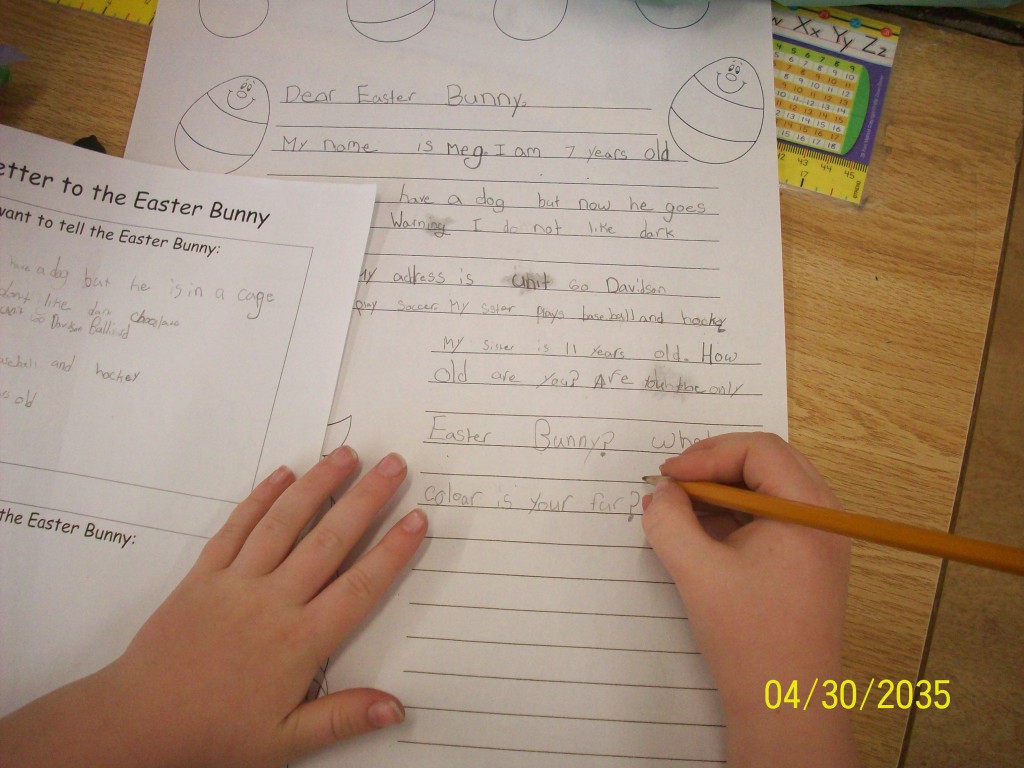 Dear Easter Bunny,
My name is Meg. I am 7 years old
have a dog but now he goes
Warning I do not like dark
My address is unit 60 Davidson
play soccer. My sister plays baseball and hockey
My sister is 11 years old. How
Old are you? Are the only
Easter Bunny? what
colour is your fur?
etter to the Easter Bunny
want to tell the Easter Bunny:
have a dog but he is in a cage
don't like dark chocolate
60
baseball and hockey
old
the Easter Bunny:
Xx Yy Zz
04/30/2035